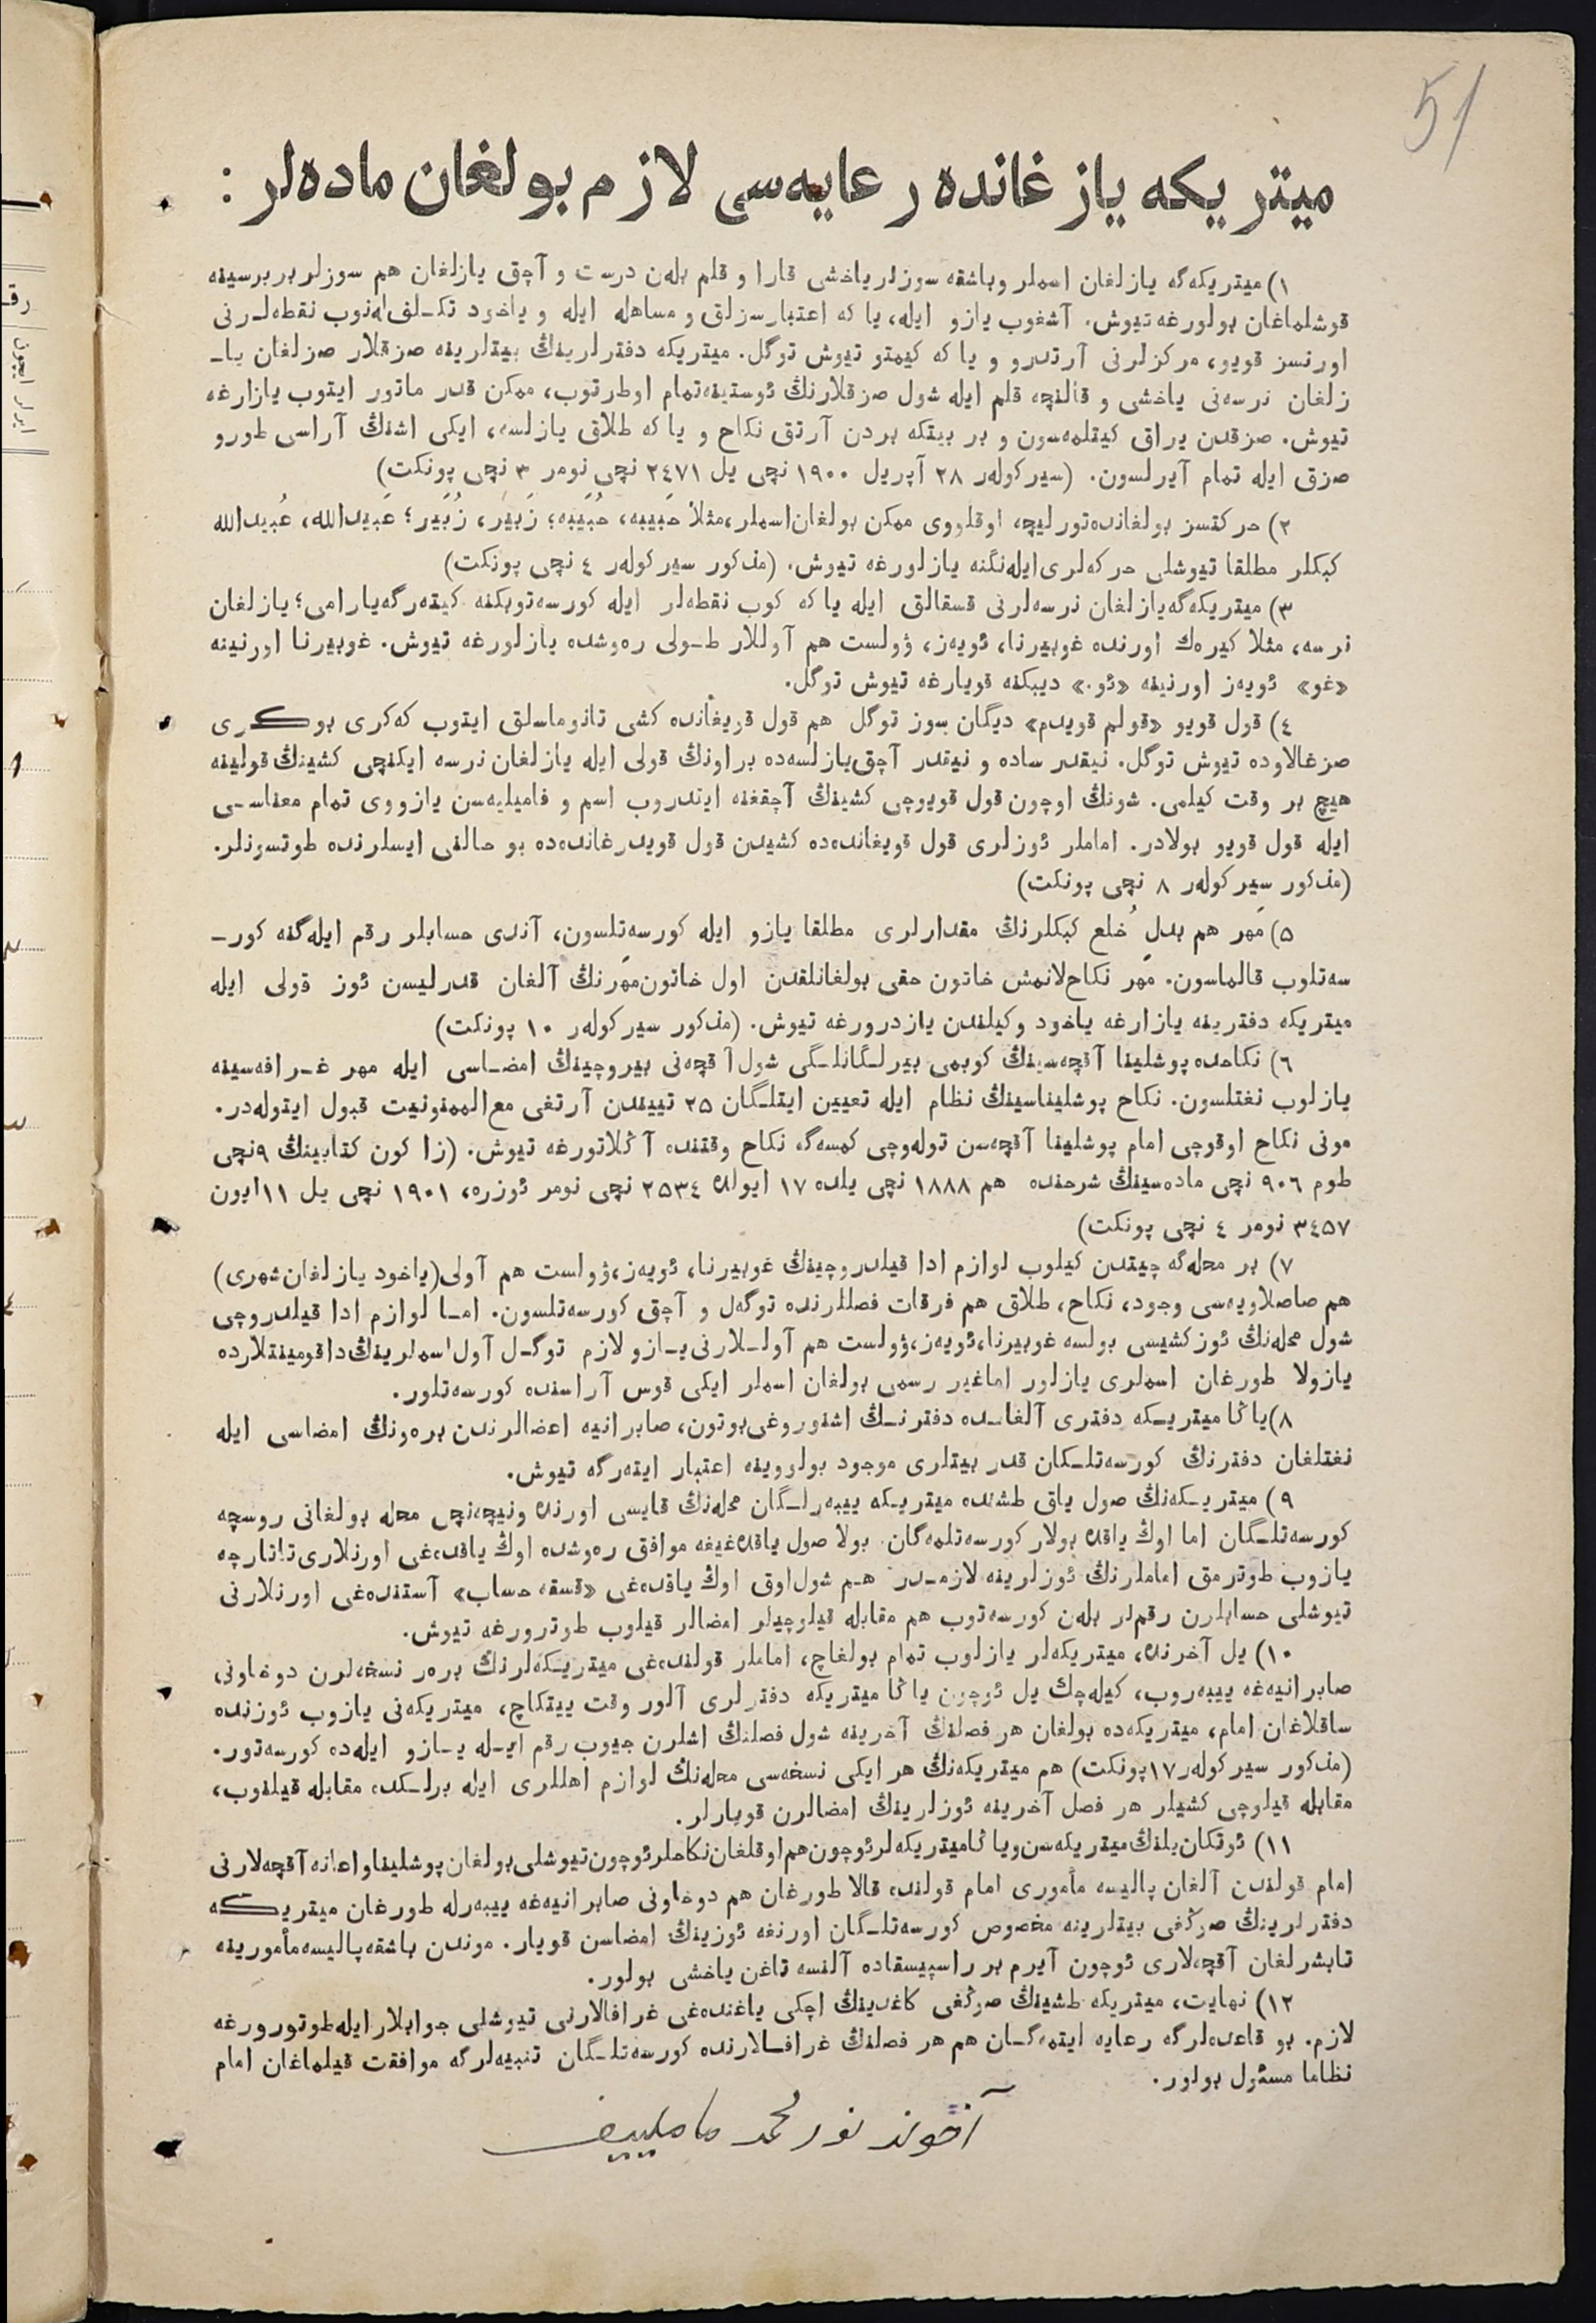 51
میتریکه یازغانده رعایه‌سی لازم بولغان ماده‌لر :
١) میتریکه‌گه یازلغان اسملر وباشقه سوزلر یاخشی قارا و قلم بله‌ن درست و آچق یازلغان هم سوزلر بر برسینه
قوشلماغان بولورغه تیوش. آشغوب یازو ایله، یا که اعتبارسزلق و مساهله ایله و یاخود تکـلفله‌نوب نقطه‌لـرنی
اورنسز قویو، مرکزلرنی آرتدرو و یا که کیمتو تیوش توگل. میتریکه دفترلرینڭ بیتلرینه صزقلار صزلغان یا-
زلغان نرسه‌نی یاخشی و قالنچه قلم ایله شول صزقلارنڭ ئوستینه‌تمام اوطرتوب، ممکن قدر ماتور ایتوب یازارغه
تیوش. صزقدن یراق کیتلمه‌سون و بر بیتکه بردن آرتق نکاح و یا که طلاق یازلسه، ایکی اشنڭ آراسی طورو
صزق ایله تمام آیرلسون. (سیرکوله‌ر ٢٨ آپریل ١٩٠٠ نچی یل ٢٤٧١ نچی نومر ٣ نچی پونکت)
٢) حرکتسز بولغانده‌تورلیچه اوقلووی ممکن بولغان‌اسملر،مثلا حَبیبه، حُبَیبه؛ زَبیَر، زُبَیر؛ عَبیدالله، عُبیدالله
کبکلر مطلقا تیوشلی حرکه‌لری‌ایله‌نگنه یازلورغه تیوش. (مذکور سیرکوله‌ر ٤ نچی پونکت)
٣) میتریکه‌گه‌یازلغان نرسه‌لرنی قسقالق ایله یا که کوب نقطه‌لر ایله کورسه‌توبکنه کیته‌رگه‌یارامی؛ یازلغان
نرسه، مثلا کیره‌ك اورنده غوبیرنا، ئویه‌ز، ۋولست هم آوللار طـولی ره‌وشده یازلورغه تیوش. غوبیرنا اورنینه
«غو» ئویه‌ز اورنینه «ئو.» دیبکنه قویارغه تیوش توگل.
٤) قول قویو «قولم قویدم» دیگان سوز توگل هم قول قویغانده کشی تانوماسلق ایتوب که‌کری بوکـری
صزغالاوده تیوش توگل. نیقدر ساده و نیقدر آچق‌یازلسه‌ده براونڭ قولی ایله یازلغان نرسه ایکنچی کشینڭ قولینه
هیچ بر وقت کیلمی. شونڭ اوچون قول قویوچی کشینڭ آچقغنه ایتدروب اسم و فامیلیه‌سن یازووی تمام معناسـی
ایله قول قویو بولادر. اماملر ئوزلری قول قویغانده‌ده کشیدن قول قویدرغانده‌ده بو حالنی ایسلرنده طوتسونلر.
(مذکور سیرکوله‌ر ٨ نچی پونکت)
٥) مَهر هم بدلِ خُلع کبکلرنڭ مقدارلری مطلقا یازو ایله کورسه‌تلسون، آندی حسابلر رقم ایله‌گنه کور-
سه‌تلوب قالماسون. مَهر نکاح‌لانمش خاتون حقی بولغانلقدن اول خاتون‌مَهرنڭ آلغان قدرلیسن ئوز قولی ایله
میتریکه دفترینه یازارغه یاخود وکیلندن یازدرورغه تیوش. (مذکور سیرکوله‌ر ١٠ پونکت)
٦) نکاحده پوشلینا آقچه‌سینڭ کوبمی بیرلـگانلـگی شول آقچه‌نی بیروچینڭ امضـاسی ایله مهر غـرافه‌سینه
یازلوب نغتلسون. نکاح پوشلیناسینڭ نظام ایله تعیین ایتلـگان ٢٥ تییندن آرتغی مع‌الممنونیت قبول ایتوله‌در.
مونی نکاح اوقوچی امام پوشلینا آقچه‌سن توله‌وچی کمسه‌گه نکاح وقتنده آڭلاتورغه تیوش. (زاکون کتابینڭ ٩نچی
طوم ٩٠٦ نچی ماده‌سینڭ شرحنده هم ١٨٨٨ نچی یلده ١٧ ایولده ٢٥٣٤ نچی نومر ئوزره، ١٩٠١ نچی یل ١١ایون
٣٤٥٧ نومر ٤ نچی پونکت)
٧) بر محله‌گه چیتدن کیلوب لوازم ادا قیلدروچینڭ غوبیرنا، ئویه‌ز،ۋولست هم آولی(یاخود یازلغان‌شهری)
هم صاصلاویه‌سی وجود، نکاح، طلاق هم فرقات فصللرنده توگه‌ل و آچق کورسه‌تلسون. امـا لوازم ادا قیلدروچی
شول محله‌نڭ ئوزکشیسی بولسه غوبیرنا،ئویه‌ز،ۋولست هم آولـلارنی‌یـازو لازم توگـل آول‌اسملرینڭ‌داقومینتلارده
یازولا طورغان اسملری یازلور اماغیر رسمی بولغان اسملر ایکی قوس آراسنده کورسه‌تلور.
٨)یاڭا میتریـکه دفتری آلغانـده دفترنـڭ اشنوروغی‌بوتون، صابرانیه اعضالرندن بره‌ونڭ امضاسی ایله
نغتلغان دفترنڭ کورسه‌تلـکان قدر بیتلری موجود بولووینه اعتبار ایته‌رگه تیوش.
٩) میتریـکه‌نڭ صول یاق طشنده میتریـکه ییبه‌رلـگان محله‌نڭ قایسی اورنده ونیچه‌نچی محله بولغانی روسچه
کورسه‌تلـگان اما اوڭ یاقده بولار کورسه‌تلمه‌گان. بولا صول یاقده‌غیغه موافق ره‌وشده اوڭ یاقده‌غی اورنلاری‌تاتارچه
یازوب طوترمق اماملرنڭ ئوزلرینه لازمـدر هـم شول‌اوق اوڭ یاقده‌غی «قسقه حساب» آستنده‌غی اورنلارنی
تیوشلی حسابلرن رقم‌لر بله‌ن کورسه‌توب هم مقابله قیلوچیلر امضالر قیلوب طوترورغه تیوش.
١٠) یل آخرنده، میتریکه‌لر یازلوب تمام بولغاچ، اماملر قولنده‌غی میتریـکه‌لرنڭ بره‌ر نسخه‌لرن دوخاونی
صابرانیه‌غه ییبه‌روب، کیله‌چك یل ئوچون یاڭا میتریکه دفترلری آلور وقت ییتکاچ، میتریکه‌نی یازوب ئوزنده
ساقلاغان امام، میتریکه‌ده بولغان هر فصلنڭ آخرینه شول فصلنڭ اشلرن جیوب رقم ایـله یـازو ایله‌ده کورسه‌تور.
(مذکور سیرکوله‌ر١٧پونکت) هم میتریکه‌نڭ هر ایکی نسخه‌سی محله‌نڭ لوازم اهللری ایله برلـکده مقابله قیلنوب،
مقابله قیلوچی کشیلر هر فصل آخرینه ئوزلرینڭ امضالرن قویارلر.
١١) ئوتکان‌یلنڭ‌میتریکه‌سن‌ویاڭامیتریکه‌لرئوچون‌هم‌اوقلغان‌نکاحلرئوچون‌تیوشلی‌بولغان‌پوشلیناواعانه آقچه‌لارنی
امام قولندن آلغان پالیسه مأموری امام قولنده قالا طورغان هم دوخاونی صابرانیه‌غه ییبه‌رله طورغان میتریـکه
دفترلرینڭ صوڭغی بیتلرینه مخصوص کورسه‌تلـگان اورنغه ئوزینڭ امضاسن قویار. موندن باشقه‌پالیسه‌مأمورینه
تابشرلغان آقچه‌لاری ئوچون آیرم بر راسپیسقاده آلنسه تاغن یاخشی بولور.
١٢) نهایت، میتریکه طشینڭ صوڭغی کاغدینڭ اچکی یاغنده‌غی غرافالارنی تیوشلی جوابلار ایله‌طوتورورغه
لازم. بو قاعده‌لرگه رعایه ایتمه‌گـان هم هر فصلنڭ غرافـالارنده کورسه‌تلـگان تنبیه‌لرگه موافقت قیلماغان امام
نظاما مسئول بولور.
آخوند نورمحمد ماملییف